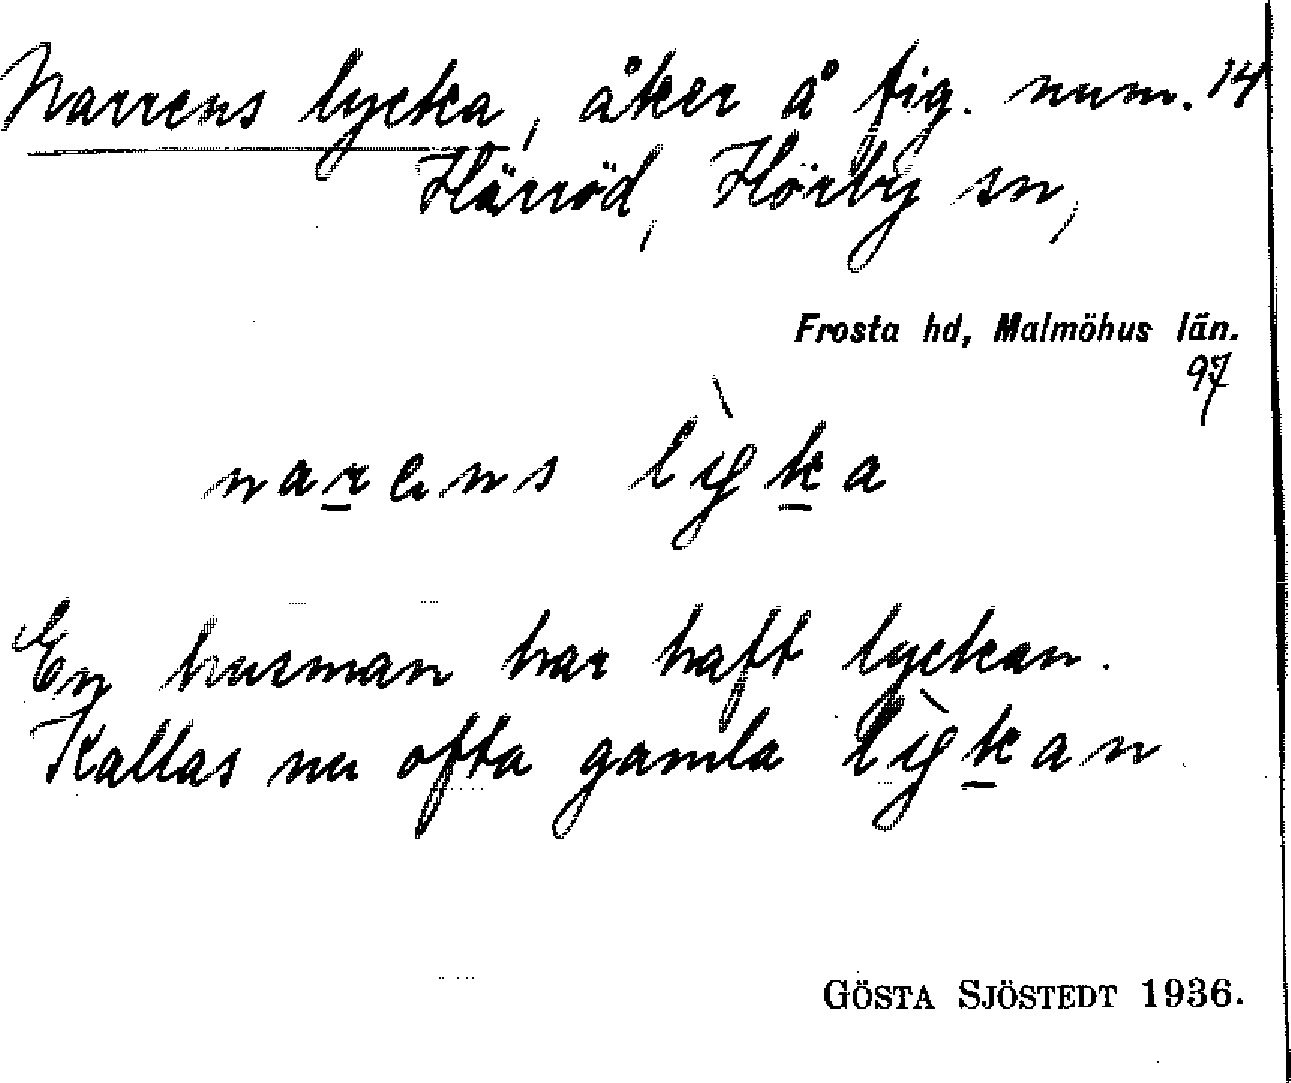 Narrens lycka, åker å fig. num. 14
Härröd, Hörby sn,
Frosta hd, Malmöhus län.
97
narens lỳka
En husman har haft lyckan.
Kallas nu ofta gamla lỳkan
GÖSTA SJÖSTEDT 1936.